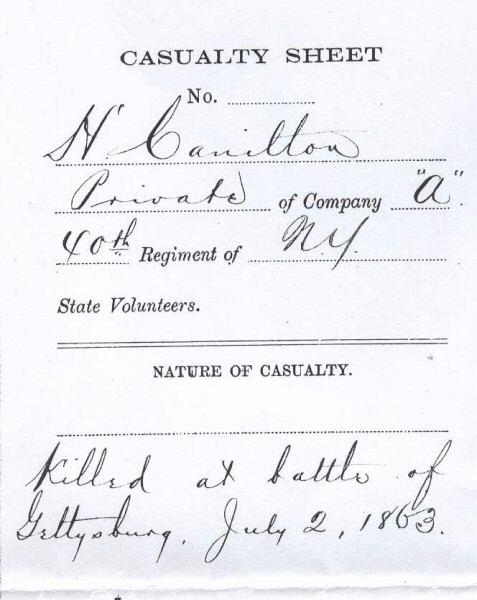 CASUALTY SHEET
No.
H Camilton
Private of Company "A".
40th Regiment of N.Y.
State Volunteers.
NATURE OF CASUALTY.
Killed at battle of
Gettysburg, July 2, 1863.